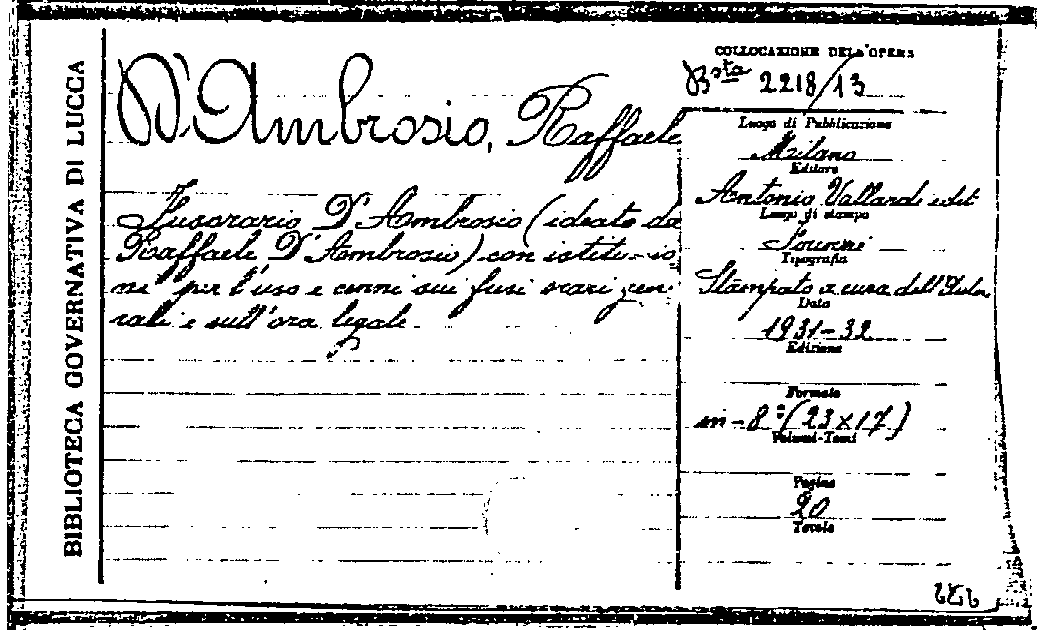 BIBLIOTECA GOVERNATIVA DI LUCCA
D'Ambrosio, Raffaele
Fusorario D'Ambrosio (ideato da
Raffaele D'Ambrosio) con istituzio
ni per l'uso e cenni sui fusi orari gene
rali e sull'ora legale.
COLLOCAZIONE DELL'OPERA
Bsta 2218/13
Luogo di Pubblicazione
Milano
Editore
Antonio Vallardi edit
Luogo di stampa
Tipografia
Stampato a cura dell'
Data
1931-32
Edizione
Formato
in-8° (23x17)
Volumi-Tomi
Pagine
20
Tavole